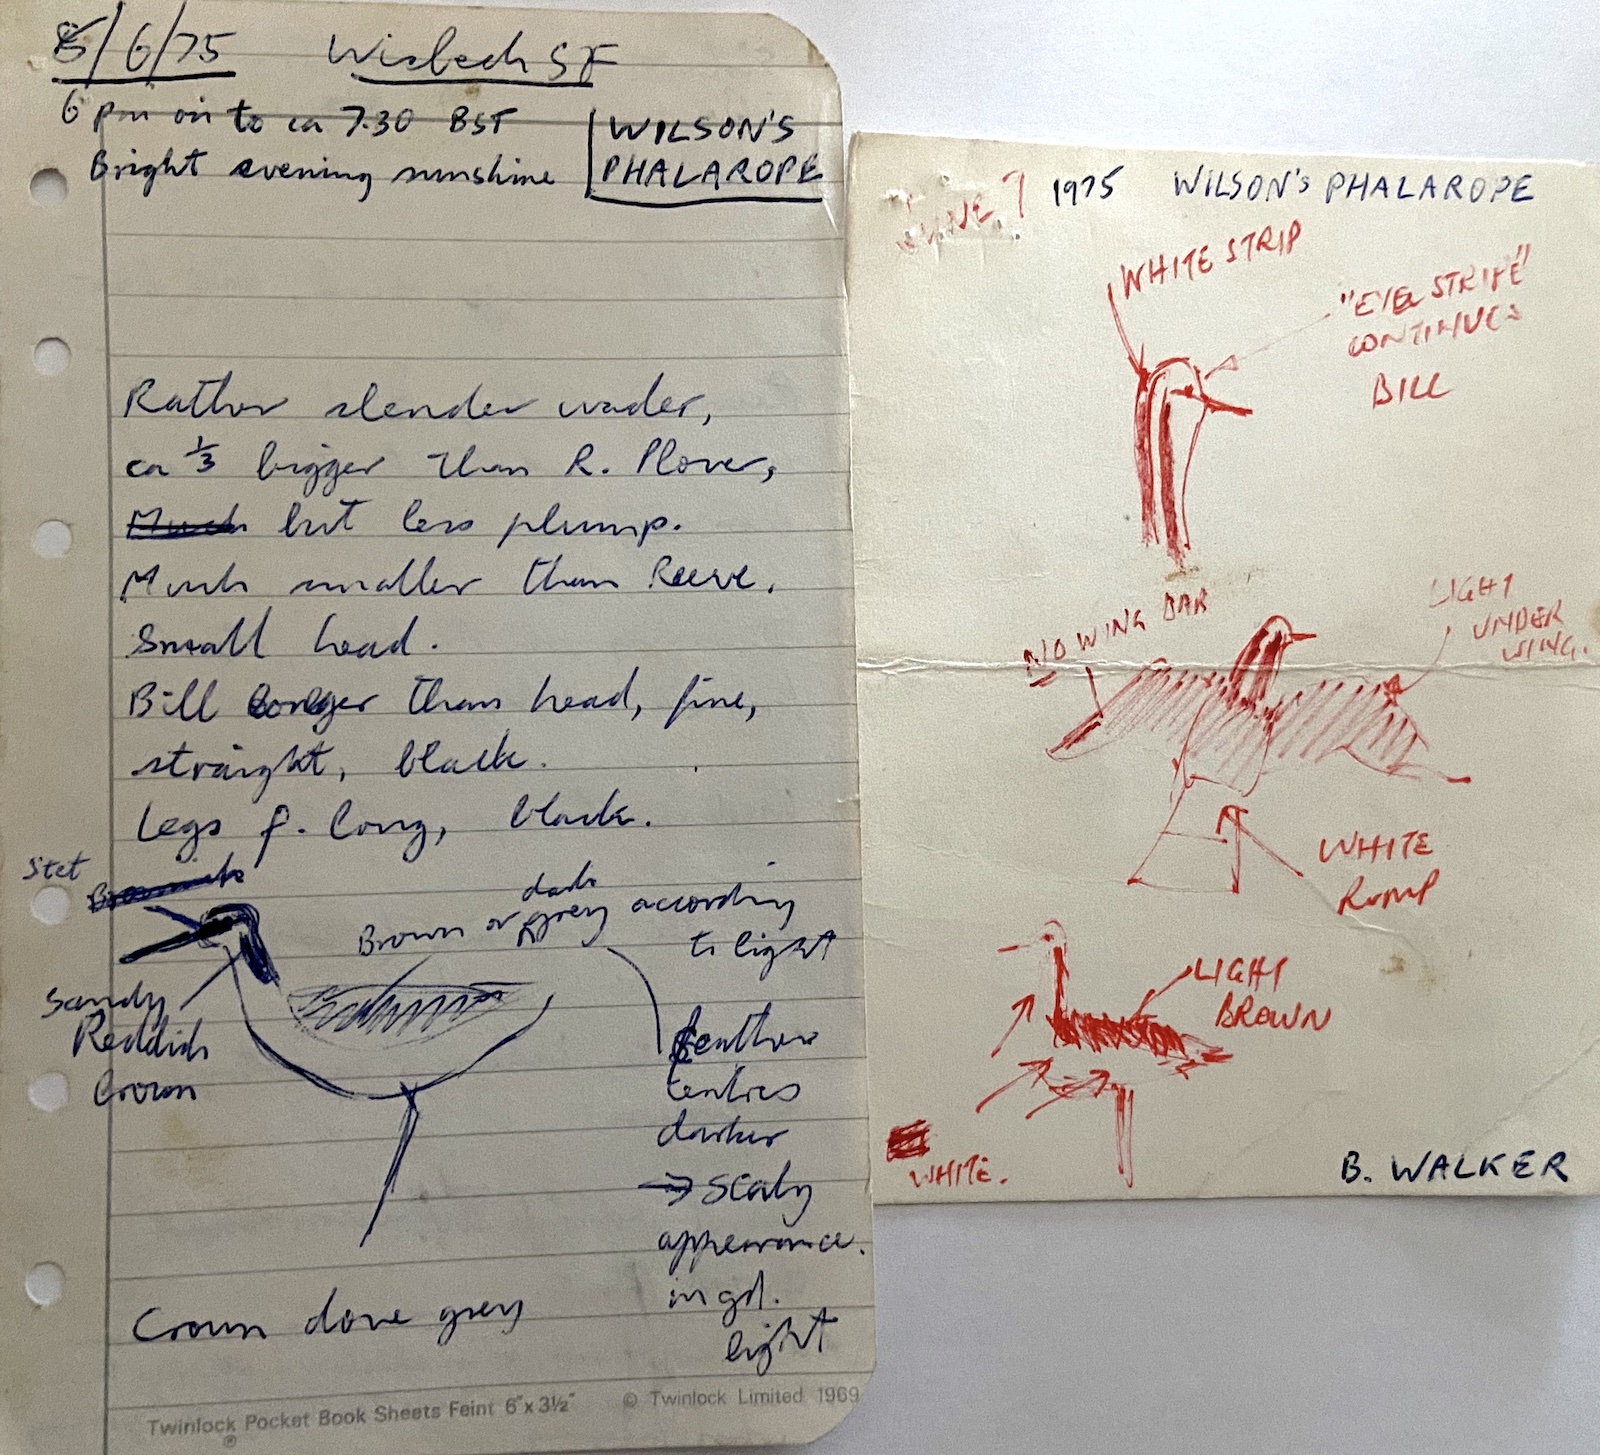 8/6/75 Wisbech SF
6 pm on to ca 7.30 BST
Bright evening sunshine
WILSON'S
PHALAROPE
Rather slender wader,
ca 1/3 bigger than R. Plover,
Much but less plump.
Much smaller than Reeve.
Small head.
Bill longer than head, fine,
straight, black.
Legs f. long, black.
Stet
dark
Brown or grey according
to light
Sandy
Reddish
brown
feather
centres
darker
→ scaly
appearance.
in gd.
light
Crown dove grey
Twinlock Pocket Book Sheets Feint 6" x 3½" © Twinlock Limited 1969
®
JUNE 7 1975 WILSON'S PHALAROPE
WHITE STRIP
"EYE STRIPE"
CONTINUES
BILL
NO WING BAR
LIGHT
UNDER
WING.
WHITE
RUMP
LIGHT
BROWN
WHITE.
B. WALKER